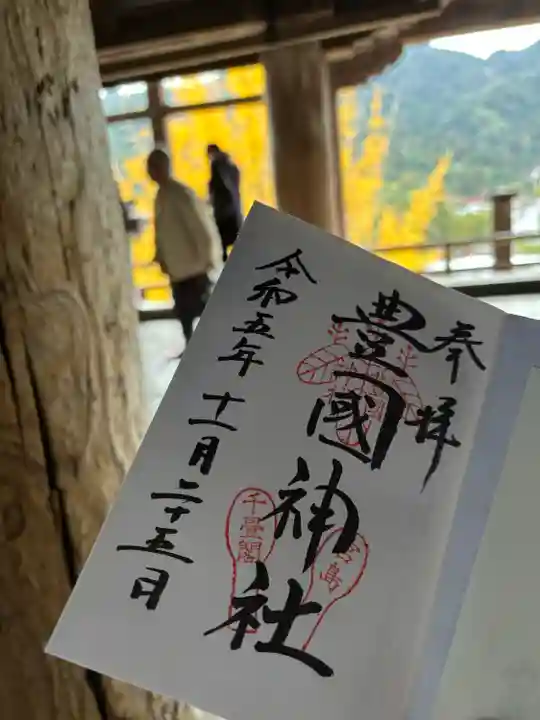 奉拝
豊國神社
宮島
千畳閣
令和五年十一月二十五日